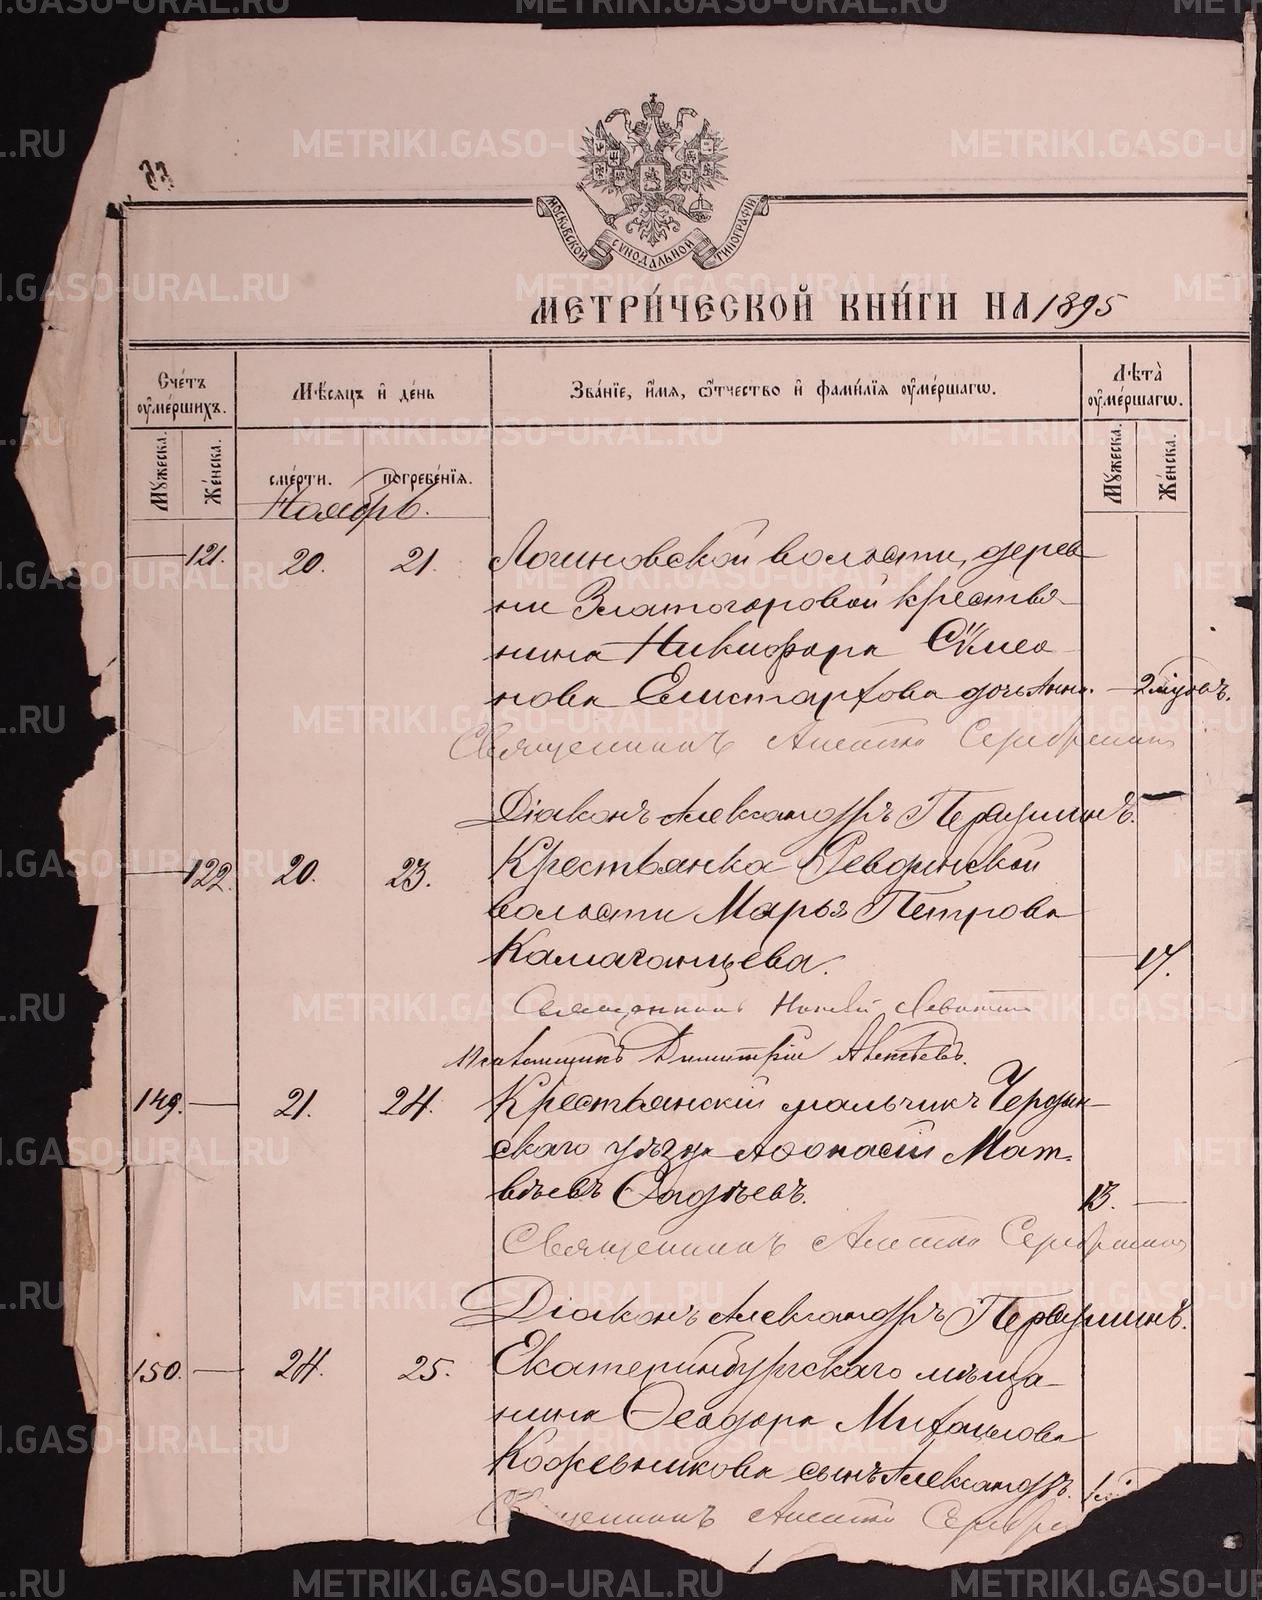 МОСКОВСКОЙ СѴНОДАЛЬНОЙ ТИПОГРАФІИ
МЕТРИ́ЧЕСКОЙ КНИ́ГИ НА 1895
Сче́тъ ᲂу҆ме́ршихъ.
Мꙋ́жеска.
Же́нска.
Мѣ́сяцъ и҆ де́нь
сме́рти.
погребе́нїѧ.
Зва́нїе, и҆́мѧ, ѻ҆́тчество и҆ фами́лїѧ ᲂу҆ме́ршагѡ.
Лѣ́та̀ ᲂу҆ме́ршагѡ.
Мꙋ́жеска.
Же́нска.
Ноябрь.
121. 20. 21. Логиновской волости, дерев
ни Златогоровой крестья
нина Никифора Симео
нова Елистархова дочь Анна. 2
Священникъ Серебренник
Діаконъ Александръ Первушинъ.
122. 20. 23. Крестьянка Ревдинской
волости Марья Петрова
Камаганцева. 17.
Священникъ Левитский
Псаломщикъ Димитрій Авктѣевъ.
149. 21. 24. Крестьянскій мальчикъ Чердын
скаго уѣзда Аѳонасій Мат
вѣевъ Ѳадѣевъ. 13.
Священникъ Серебренник
Діаконъ Александръ Первушинъ.
150. 24. 25. Екатеринбургскаго мѣща
нина Ѳеодора Михаилова
Кожевникова сынъ Александръ. 1
Священникъ Серебре
METRIKI.GASO-URAL.RU